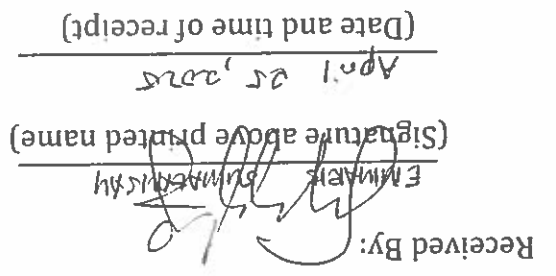 Received By:
(Signature above printed name)
April 25, 2025
(Date and time of receipt)